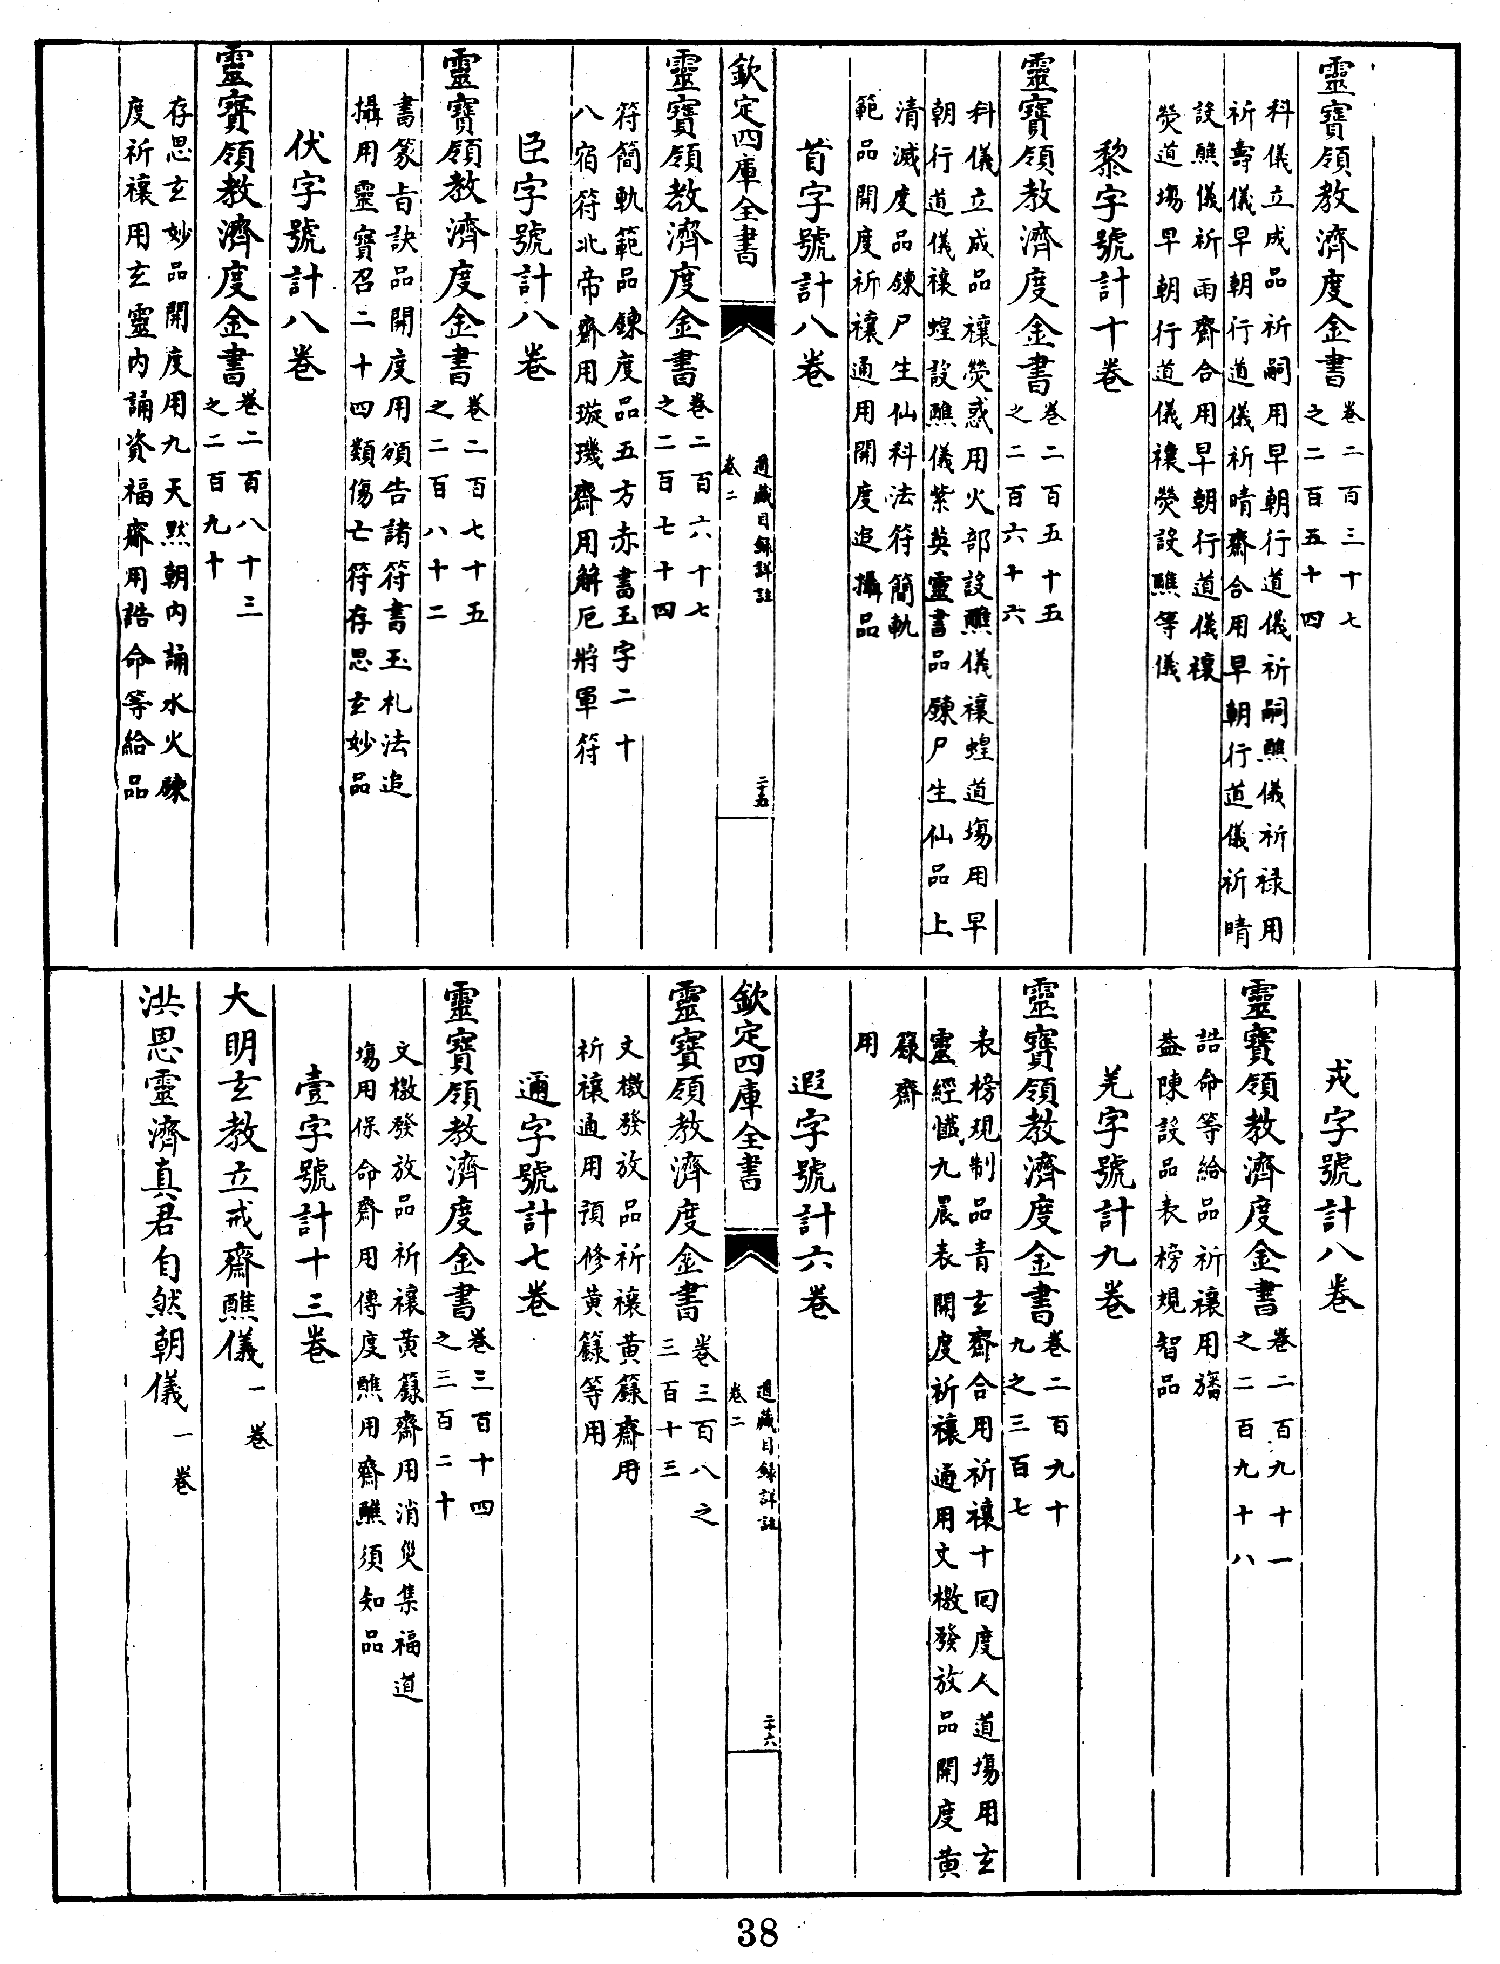 靈寶領教濟度金書卷二百三十七
之二百五十四
科儀立成品祈嗣用早朝行道儀祈嗣醮儀祈祿用
祈壽儀早朝行道儀祈晴齋合用早朝行道儀祈晴
設醮儀祈雨齋合用早朝行道儀禳
熒道場早朝行道儀禳熒設醮等儀
黎字號計十卷
靈寶領教濟度金書卷二百五十五
之二百六十六
科儀立成品禳熒惑用火部設醮儀禳蝗道場用早
朝行道儀禳蝗設醮儀紫英靈書品鍊尸生仙品上
清滅度品鍊尸生仙科法符簡軌
範品開度祈禳通用開度追攝品
首字號計八卷
欽定四庫全書
道藏目録詳註
卷二
二十五
靈寶領教濟度金書卷二百六十七
之二百七十四
符簡軌範品鍊度品五方赤書玉字二十
八宿符北帝齋用璇璣齋用解厄將軍符
臣字號計八卷
靈寶領教濟度金書卷二百七十五
之二百八十二
書篆旨訣品開度用頒告諸符書玉札法追
攝用靈寶召二十四類傷亡符存思玄妙品
伏字號計八卷
靈寶領教濟度金書卷二百八十三
之二百九十
存思玄妙品開度用九天默朝內誦水火鍊
度祈禳用玄靈內誦資福齋用誥命等給品
戎字號計八卷
靈寶領教濟度金書卷二百九十一
之二百九十八
誥命等給品祈禳用旛
蓋陳設品表榜規智品
羌字號計九卷
靈寶領教濟度金書卷二百九十
九之三百七
表榜現制品青玄齋合用祈禳十回度人道場用玄
靈經懺九晨表開度祈禳通用文檄發放品開度黃
籙齋
用
遐字號計六卷
欽定四庫全書
道藏目録詳註
卷二
二十六
靈寶領教濟度金書卷三百八之
三百十三
文檄發放品祈禳黃籙齋用
祈禳通用預修黃籙等用
邇字號計七卷
靈寶領教濟度金書卷三百十四
之三百二十
文檄發放品祈禳黃籙齋用消災集福道
場用保命齋用傳度醮用齋醮須知品
壹字號計十三卷
大明玄教立戒齋醮儀一卷
洪恩靈濟真君自然朝儀一卷
38